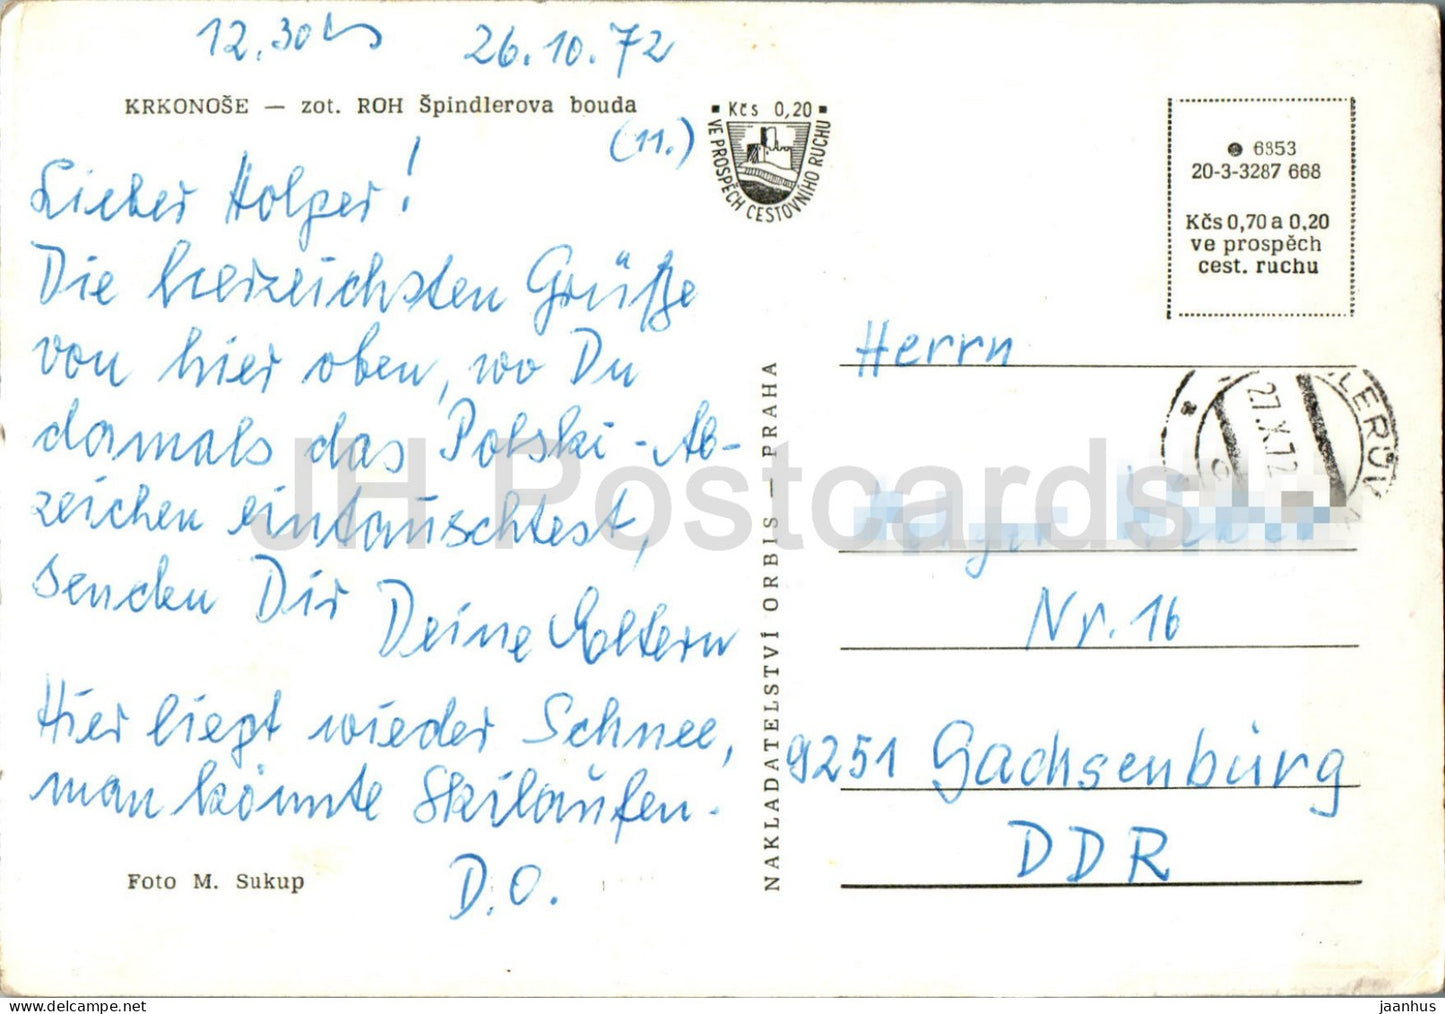 12.30 h 26.10.72
KRKONOŠE — zot. ROH Špindlerova bouda
(11.)
Lieber Holger!
Die herzlichsten Grüße
von hier oben, wo Du
damals das Polski-Ab-
zeichen eintauschtest,
senden Dir Deine Eltern
Hier liegt wieder Schnee,
man könnte Skilaufen.
D.O.
Foto M. Sukup
Kčs 0,20
VE PROSPĚCH CESTOVNÍHO RUCHU
NAKLADATELSTVÍ ORBIS — PRAHA
6853
20-3-3287 668
Kčs 0,70 a 0,20
ve prospěch
cest. ruchu
27.X.72
Herrn
Nr. 16
9251 Sachsenburg
DDR
JH Postcards
jaanhus